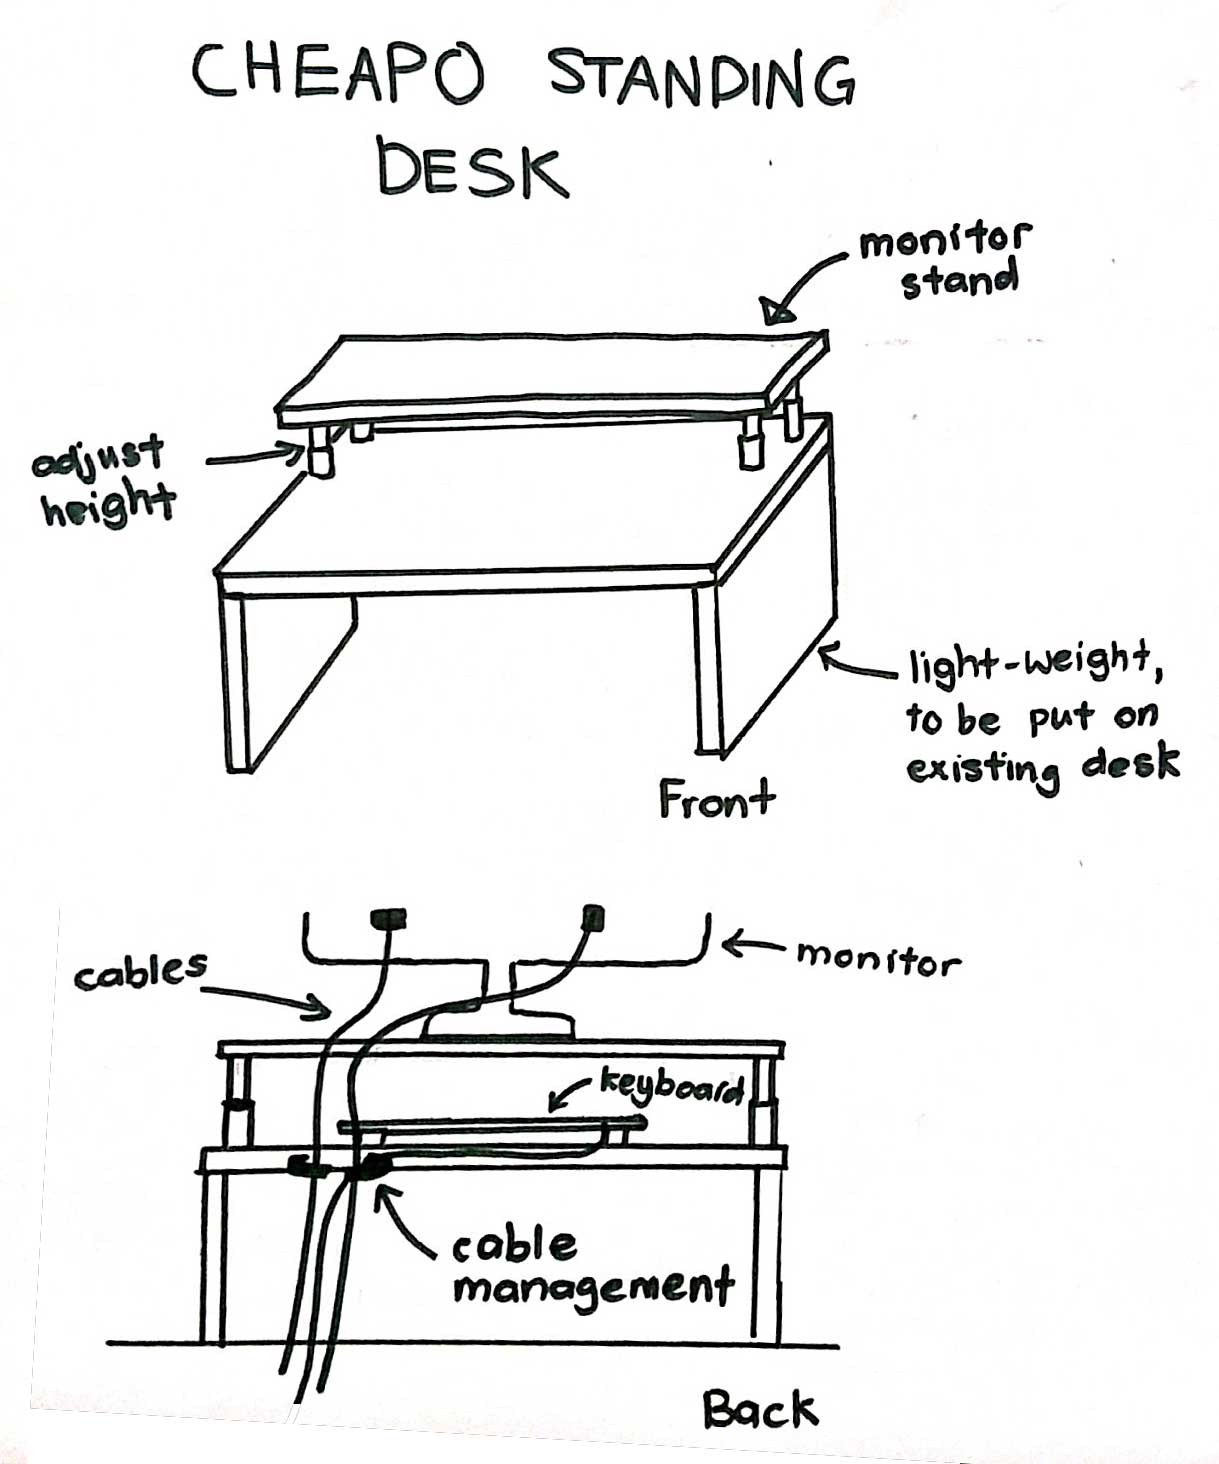 CHEAPO STANDING
DESK
monitor
stand
adjust
height
light-weight,
to be put on
existing desk
Front
cables
monitor
keyboard
cable
management
Back